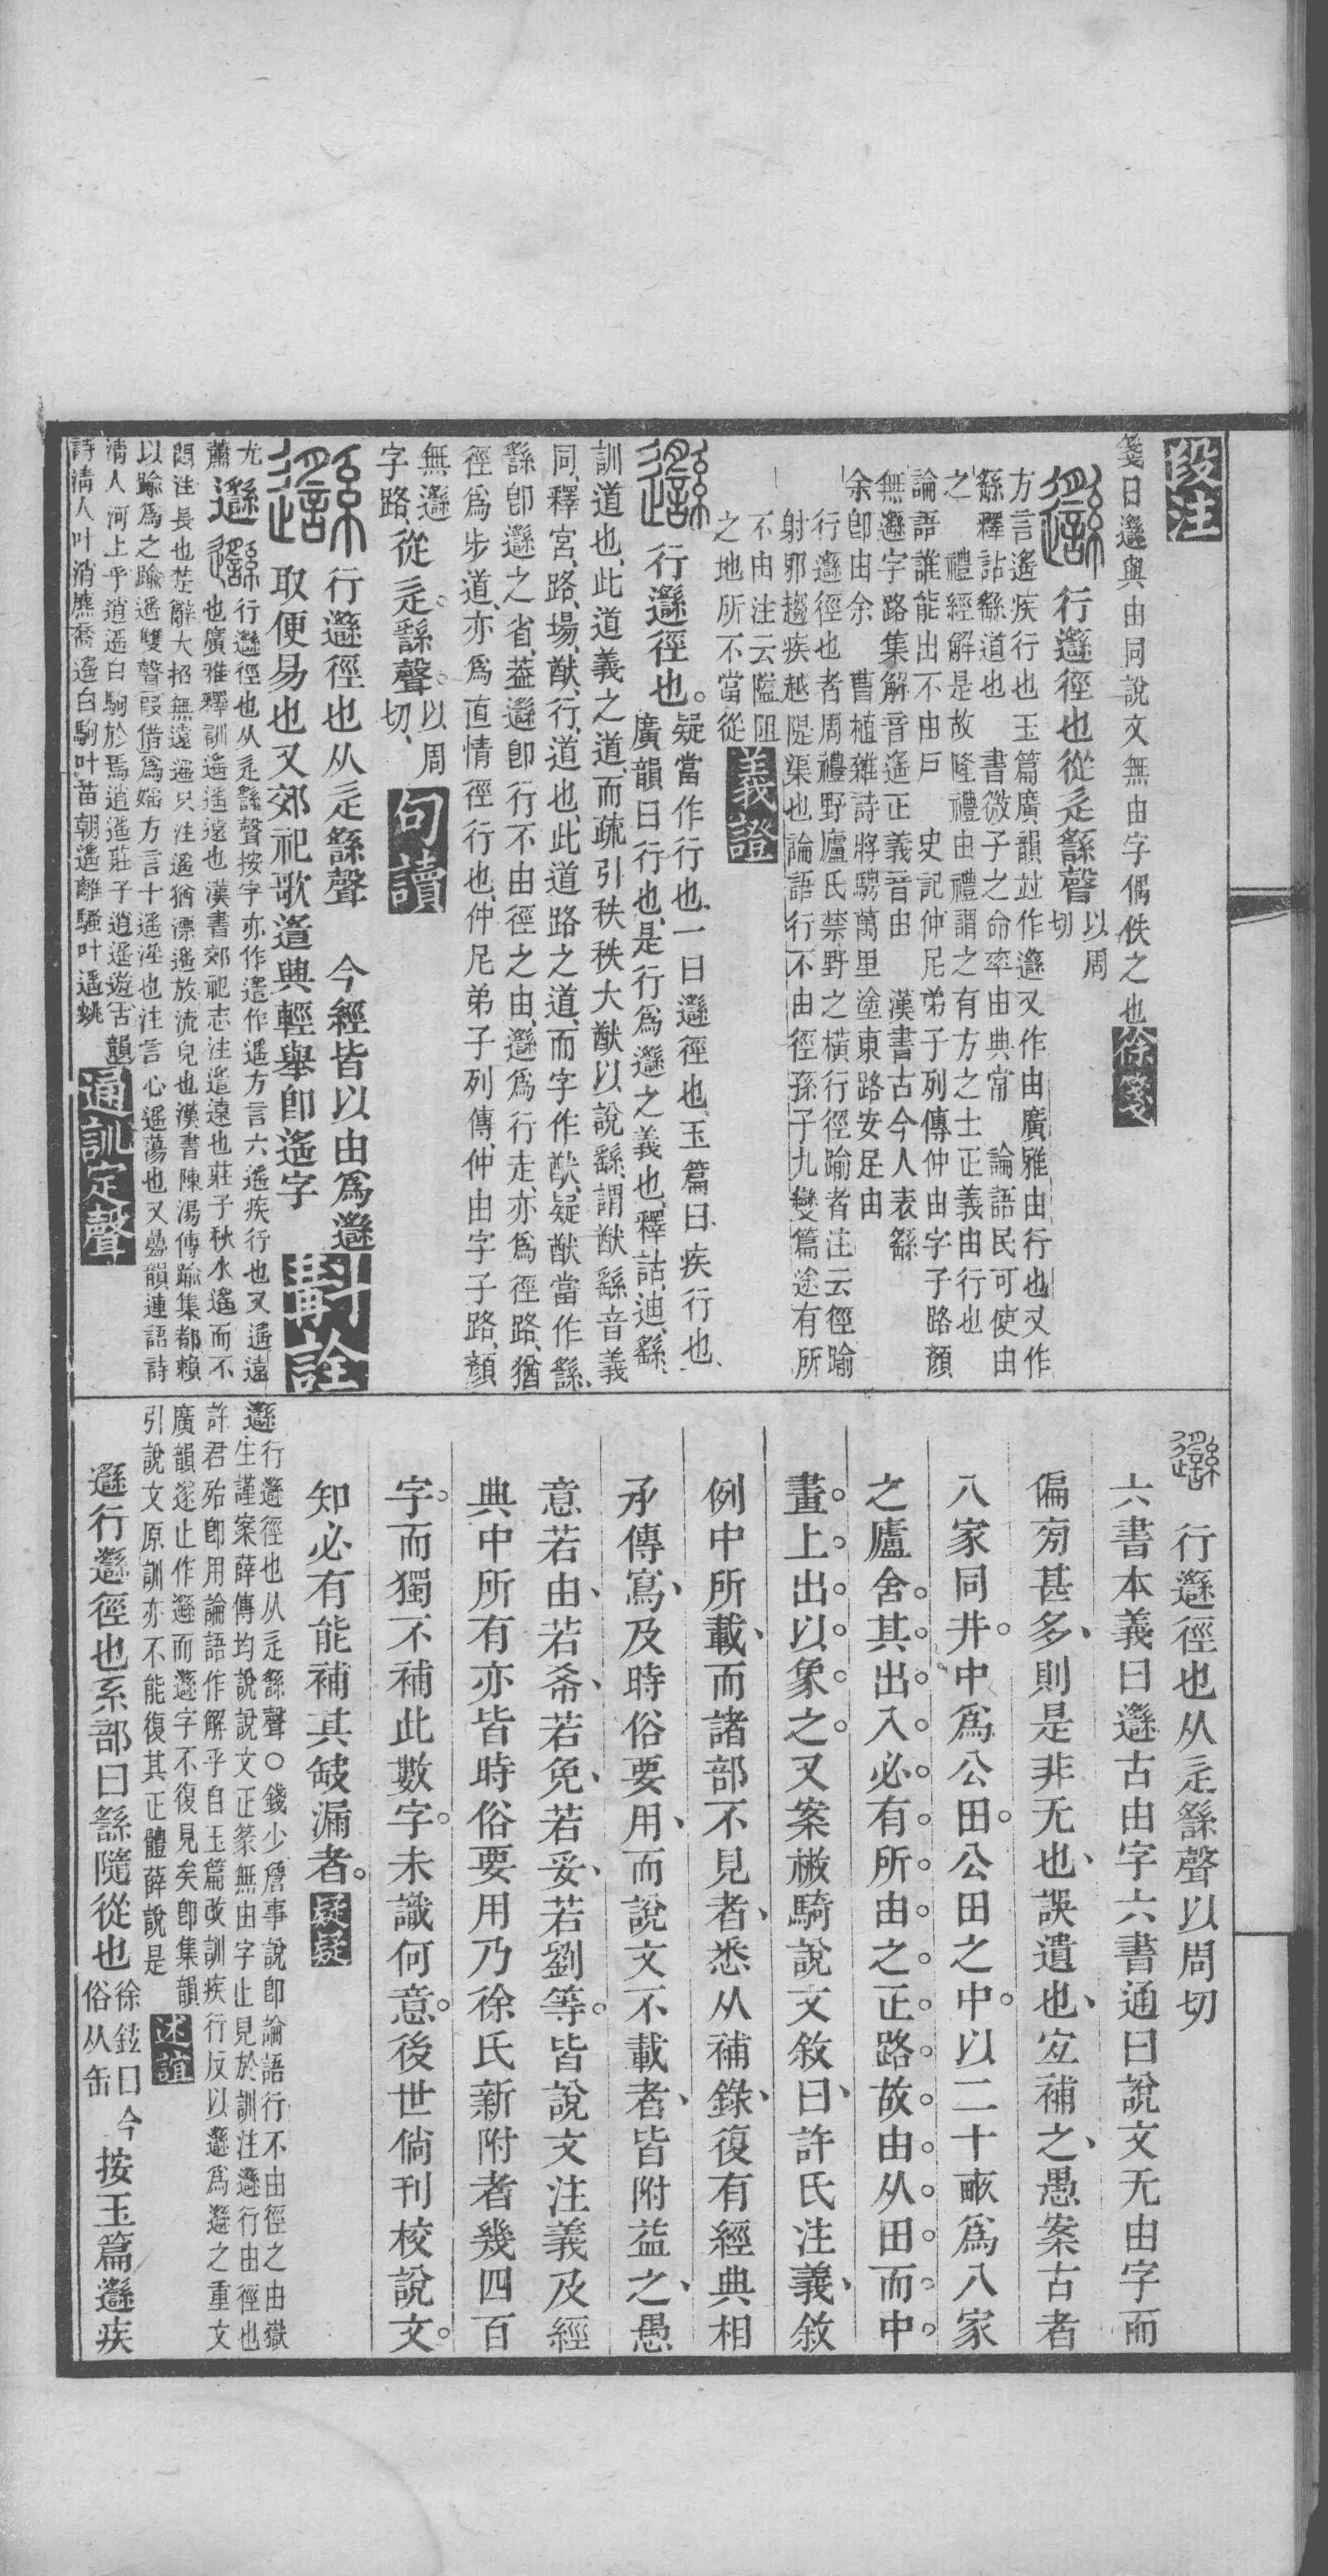 段注
箋曰邎與由同說文無由字偶佚之也徐箋
行邎徑也從辵䌛聲以周
切
方言遙疾行也玉篇廣韻竝作邎又作由廣雅由行也又作
䌛釋詁䌛道也　書微子之命率由典常　論語民可使由
之　禮經解是故隆禮由禮謂之有方之士正義由行也
論語誰能出不由戶　史記仲尼弟子列傳仲由字子路顏
無邎字路集解音遙正義音由　漢書古今人表䌛
余卽由余　曹植雜詩將騁萬里塗東路安足由
行邎徑也者周禮野廬氏禁野之橫行徑踰者注云徑踰
射邪趨疾越隄渠也論語行不由徑孫子九變篇途有所
不由注云隘阻
之地所不當從義證
行邎徑也。疑當作行也、一曰邎徑也、玉篇曰疾行也、
廣韻曰行也、是行爲邎之義也、釋詁、迪、䌛、
訓道也、此道義之道、而疏引秩秩大猷以說䌛、謂猷䌛音義
同、釋宮、路、場、猷、行、道也、此道路之道、而字作猷、疑猷當作䌛、
䌛卽邎之省、葢邎卽行不由徑之由、邎爲行走、亦爲徑路、猶
徑爲步道、亦爲直情徑行也、仲尼弟子列傳、仲由字子路、顏
無邎
字路、從辵。䌛聲。以周
切、句讀
行邎徑也从辵䌛聲　今經皆以由爲邎
取便易也又郊祀歌遙興輕舉卽遙字斠詮
尤
蕭邎行邎徑也从辵䌛聲按字亦作遙作遙方言六遙疾行也又遙遠
也廣雅釋訓遙遙遠也漢書郊祀志注遙遠也莊子秋水遙而不
悶注長也楚辭大招無遠遙只注遙猶漂遙放流皃也漢書陳湯傳踰集都賴
以踰爲之踰遙雙聲叚借爲媱方言十遙淫也注言心遙蕩也又疊韻連語詩
淸人河上乎逍遙白駒於焉逍遙莊子逍遙遊古韻
詩淸人叶消麃喬遙白駒叶苗朝遙離騷叶遙姚　通訓定聲
行邎徑也从辵䌛聲以周切
六書本義曰邎古由字六書通曰說文无由字而
偏旁甚多、則是非无也、誤遺也、宐補之、愚案古者
八家同井。中爲公田。公田之中。以二十畝爲八家
之廬舍。其出入必有所由之正路。故由从田而中
畫上出。以象之。又案楸騎說文敘曰、許氏注義、敘
例中所載、而諸部不見者、悉从補錄、復有經典相
承傳寫、及時俗要用、而說文不載者、皆附益之、愚
意若由、若希、若免、若妥、若劉等。皆說文注義及經
典中所有亦皆時俗要用乃徐氏新附者幾四百
字。而獨不補此數字。未識何意。後世倘刊校說文。
知必有能補其缺漏者。疑疑
邎行邎徑也从辵䌛聲○錢少詹事說卽論語行不由徑之由嶽
生謹案薛傳均說說文正篆無由字止見於訓注邎行由徑也
許君殆卽用論語作解乎自玉篇改訓疾行反以邎爲邎之重文
廣韻遂止作邎而邎字不復見矣卽集韻
引說文原訓亦不能復其正體薛說是　述誼
邎行邎徑也系部曰䌛隨從也徐鉉曰今
俗从䍃　按玉篇邎疾